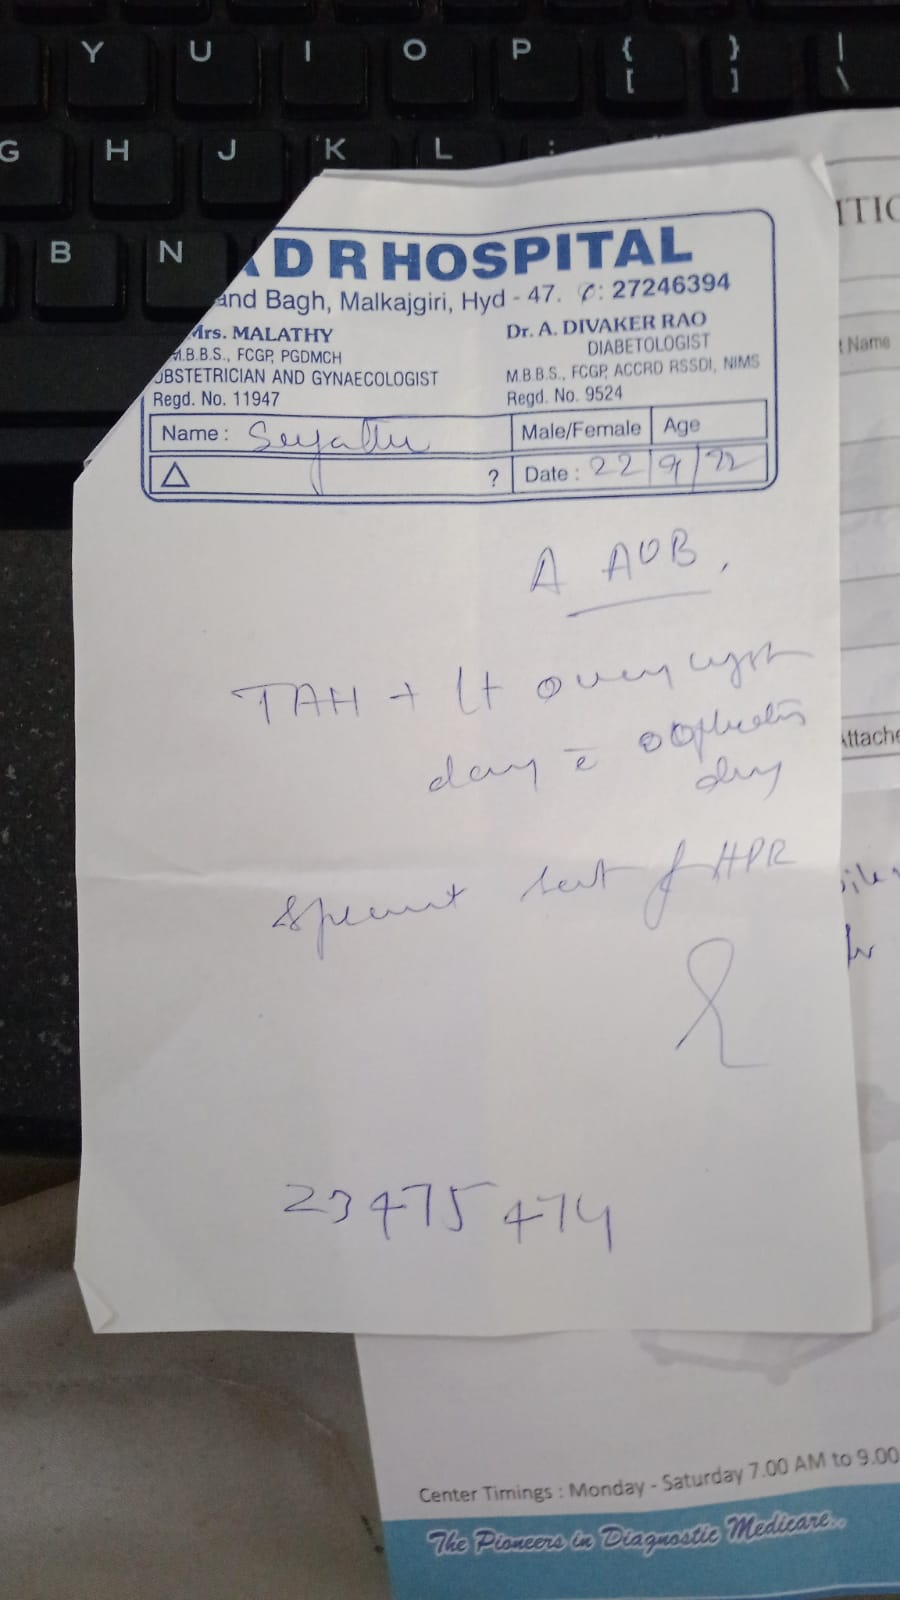 Y U I O P { } |
[ ] \
G H J K L :
B N
D R HOSPITAL
and Bagh, Malkajgiri, Hyd - 47. ✆: 27246394
Mrs. MALATHY
M.B.B.S., FCGP, PGDMCH
OBSTETRICIAN AND GYNAECOLOGIST
Regd. No. 11947
Dr. A. DIVAKER RAO
DIABETOLOGIST
M.B.B.S., FCGP, ACCRD RSSDI, NIMS
Regd. No. 9524
Name : Male/Female Age
△ ? Date : 22/9/22
AUB.
TAH + Lt ovary cyst
c̄
sent f HPR
23475474
Name
Attache
Center Timings : Monday - Saturday 7.00 AM to 9.00
The Pioneers in Diagnostic Medicare..